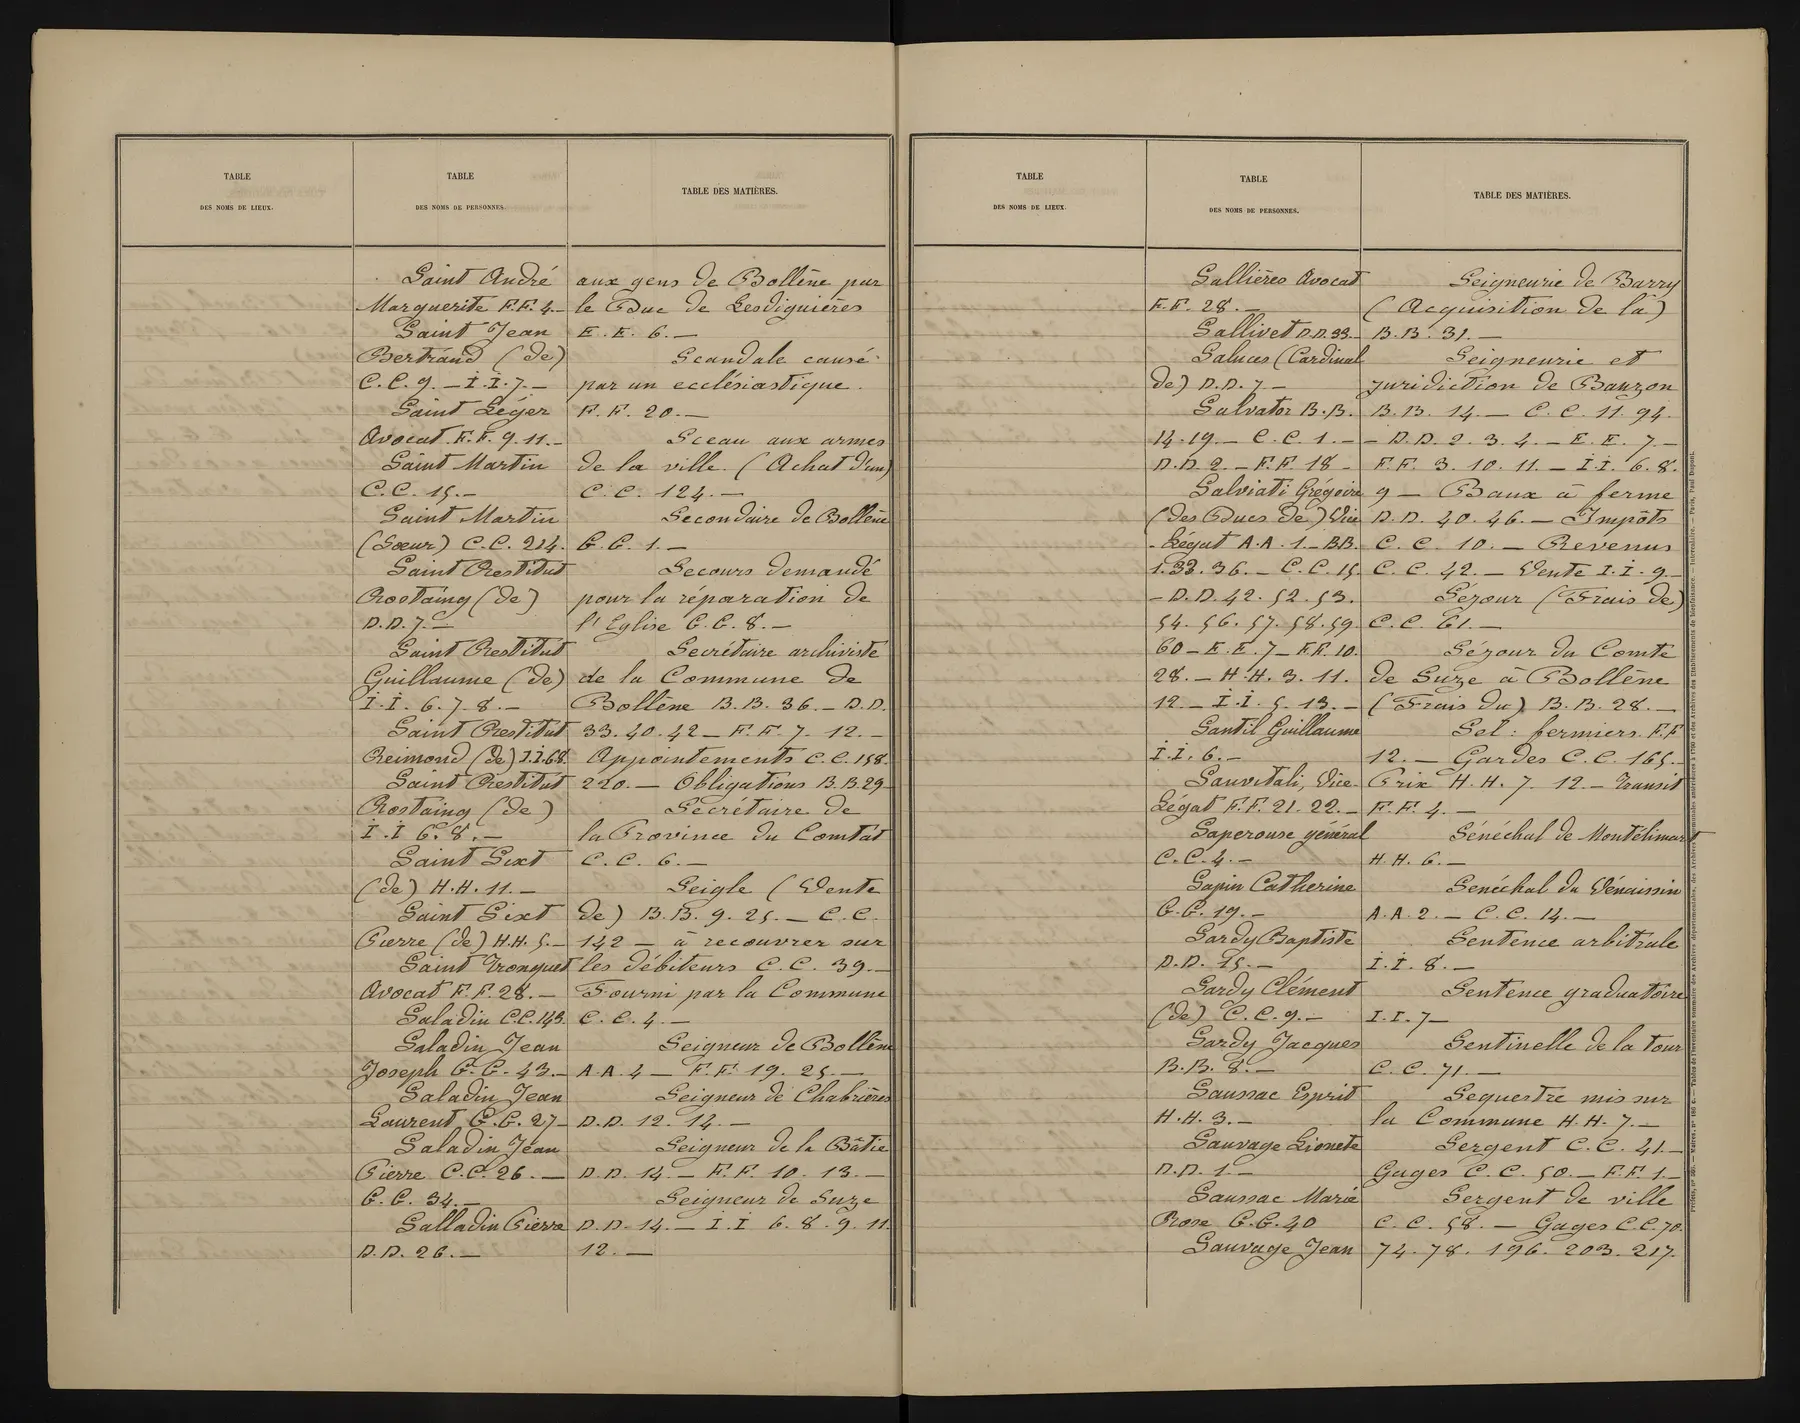 TABLE
DES NOMS DE LIEUX.
TABLE
DES NOMS DE PERSONNES.
TABLE DES MATIÈRES.
Saint André
Marguerite F.F. 4.—
Saint Jean
Bertrand (de)
C.C. 9. — I.I. 7. —
Saint Léger
Avocat F.F. 9. 11. —
Saint Martin
C.C. 15. —
Saint Martin
(Sœur) C.C. 214.
Saint Restitut
Rostaing (de)
D.D. 7. —
Saint Restitut
Guillaume (de)
I.I. 6. 7. 8. —
Saint Restitut
Reimond (de) I.I. 6.8.
Saint Restitut
Rostaing (de)
I.I 6. 8. —
Saint Sixt
(de) H.H. 11. —
Saint Sixt
Pierre (de) H.H. 5. —
Saint Tronquet
Avocat F.F. 28. —
Saladin C.C. 143.
Saladin Jean
Joseph G.G. 43. —
Saladin Jean
Laurent G.G. 27 —
Saladin Jean
Pierre C.C. 26. —
G.G. 34. —
Salladin Pierre
D.D. 26. —
aux gens de Bollène par
le Duc de Lesdiguières
E.E. 6. —
Scandale causé
par un ecclésiastique.
F.F. 20. —
Sceau aux armes
de la ville. (Achat d'un)
C.C. 124. —
Secondaire de Bollène
G.G. 1. —
Secours demandé
pour la reparation de
l'Eglise G.G. 8. —
Secrétaire archiviste
de la Commune de
Bollène B.B. 36. — D.D.
33. 40. 42 — F.F. 7. 12. —
Appointements C.C. 158.
220. — Obligations B.B. 29 —
Secrétaire de
la Province du Comtat
C.C. 6. —
Seigle (Vente
de) B.B. 9. 25. — C.C.
142 — à recouvrer sur
les débiteurs C.C. 39. —
Fourni par la Commune
C.C. 4. —
Seigneur de Bollène
A.A. 4 — F.F. 19. 25. —
Seigneur de Chabrières
D.D. 12. 14. —
Seigneur de la Bâtie
D.D. 14. — F.F. 10. 13. —
Seigneur de Suze
D.D. 14. — I.I 6. 8. 9. 11.
12. —
TABLE
DES NOMS DE LIEUX.
TABLE
DES NOMS DE PERSONNES.
TABLE DES MATIÈRES.
Sallières Avocat
F.F. 28. —
Sallivet D.D. 33. —
Saluces (Cardinal
de) D.D. 7 —
Salvator B.B.
14. 19. — C.C. 1. —
D.D. 2. — F.F. 18 —
Salviati Grégoire
(des Ducs de) Vice
-Légat A.A. 1. — B.B.
1. 33. 36. — C.C. 15
— D.D. 42. 52. 53.
54. 56. 57. 58. 59
60 — E.E. 7 — F.F. 10.
28. — H.H. 3. 11.
12. — I.I. 5. 13. —
Santil Guillaume
I.I. 6. —
Sanvitali, Vice-
Légat F.F. 21. 22. —
Saperouse général
C.C. 4. —
Sapin Catherine
G.G. 19. —
Sardy Baptiste
D.D. 15. —
Sardy Clément
(de) C.C. 9. —
Sardy Jacques
B.B. 8. —
Saussac Esprit
H.H. 3. —
Sauvage Lionete
D.D. 1. —
Saussac Marie
Rose G.G. 40
Sauvage Jean
Seigneurie de Barry
(Acquisition de la)
B.B. 31. —
Seigneurie et
juridiction de Bauzon
B.B. 14. — C.C. 11. 94.
— D.D. 2. 3. 4. — E.E. 7. —
F.F. 3. 10. 11. — I.I. 6. 8.
9 — Baux à ferme
D.D. 40. 46. — Impôts
C.C. 10. — Revenus
C.C. 42. — Vente I.I. 9. —
Séjour (Frais de)
C.C. 61. —
Séjour du Comte
de Suze à Bollène
(Frais du) B.B. 28. —
Sel: fermiers F.F
12. — Gardes C.C. 165. —
Prix H.H. 7. 12. — Transit
F.F. 4. —
Sénéchal de Montélimart
H.H. 6. —
Senéchal du Vénaissin
A.A. 2. — C.C. 14. —
Sentence arbitrale
I.I. 8. —
Sentence graduatoire
I.I. 7 —
Sentinelle de la tour
C.C. 71. —
Sequestre mis sur
la Commune H.H. 7. —
Sergent C.C. 41. —
Gages C.C. 50. — F.F. 1. —
Sergent de ville
C.C. 58. — Gages C.C. 70.
74. 78. 196. 203. 217.